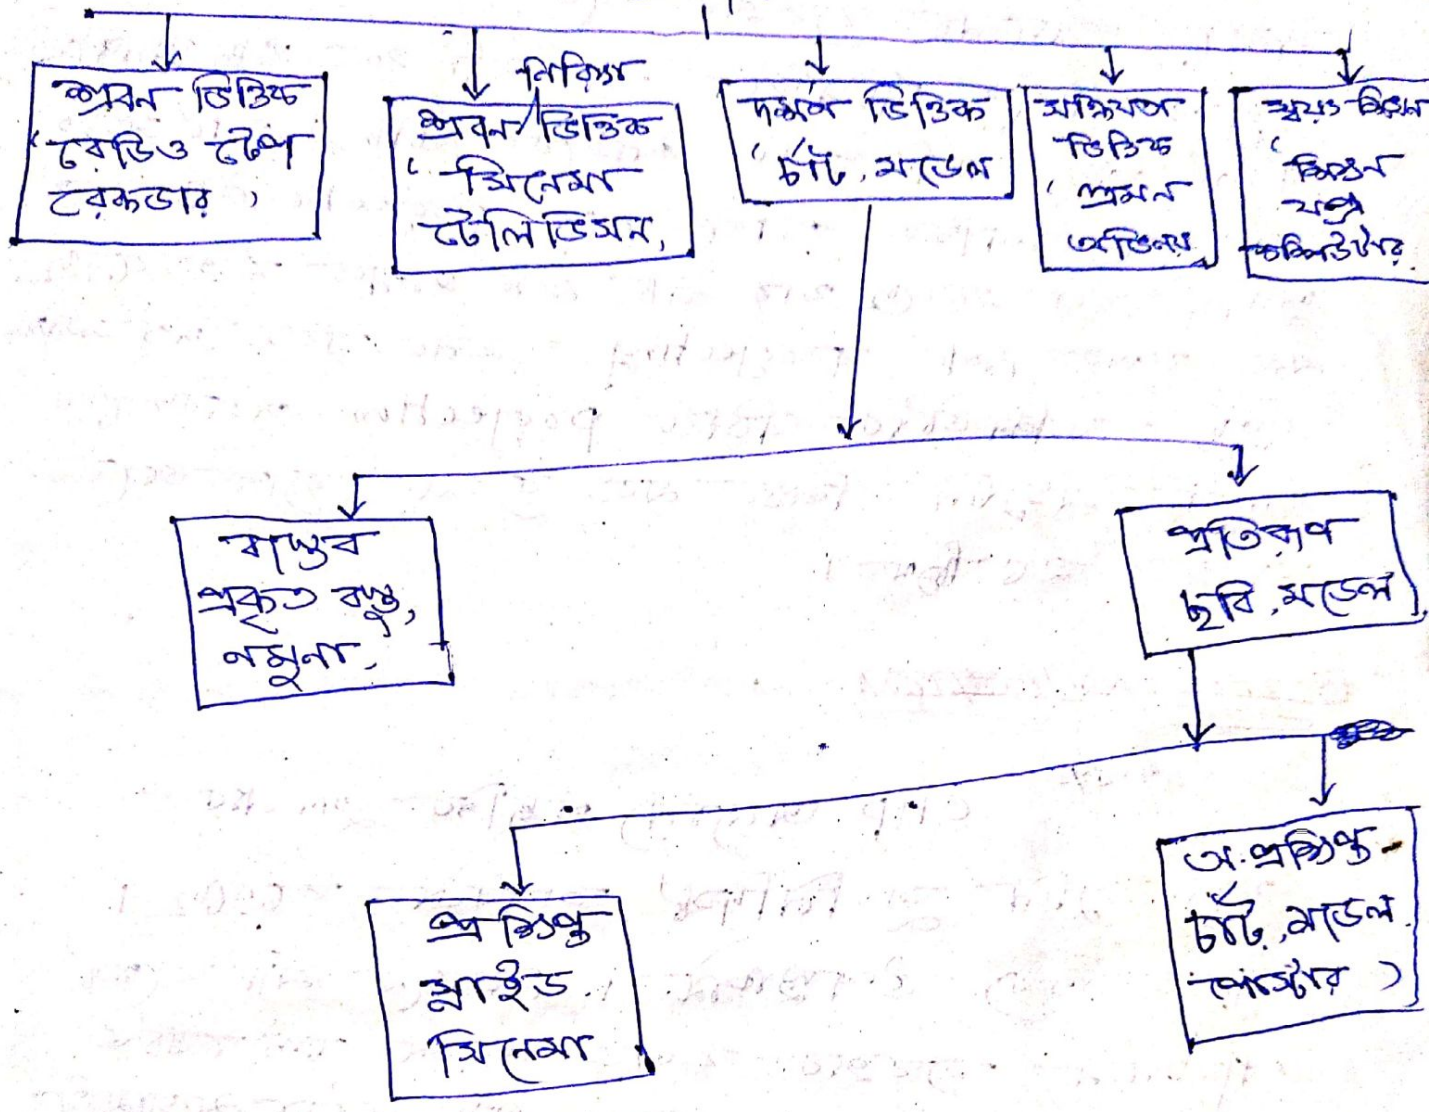 শ্রবন ভিত্তিক
রেডিও টেপ
রেকডার )
নিরিক্ষা
শ্রবন / ভিত্তিক
সিনেমা
টেলিভিসন,
দর্শণ ভিত্তিক
চার্ট, মডেল
সক্রিয়তা
ভিত্তিক
ভ্রমন
অভিনয়
স্বয়ং শিক্ষন
শিক্ষন
যন্ত্র
কম্পিউটার
বাস্তব
প্রকৃত বস্তু,
নমুনা.
প্রতিরূপ
ছবি, মডেল
প্রক্ষিপ্ত
স্লাইড
সিনেমা
অ-প্রক্ষিপ্ত
চার্ট, মডেল
পোস্টার )